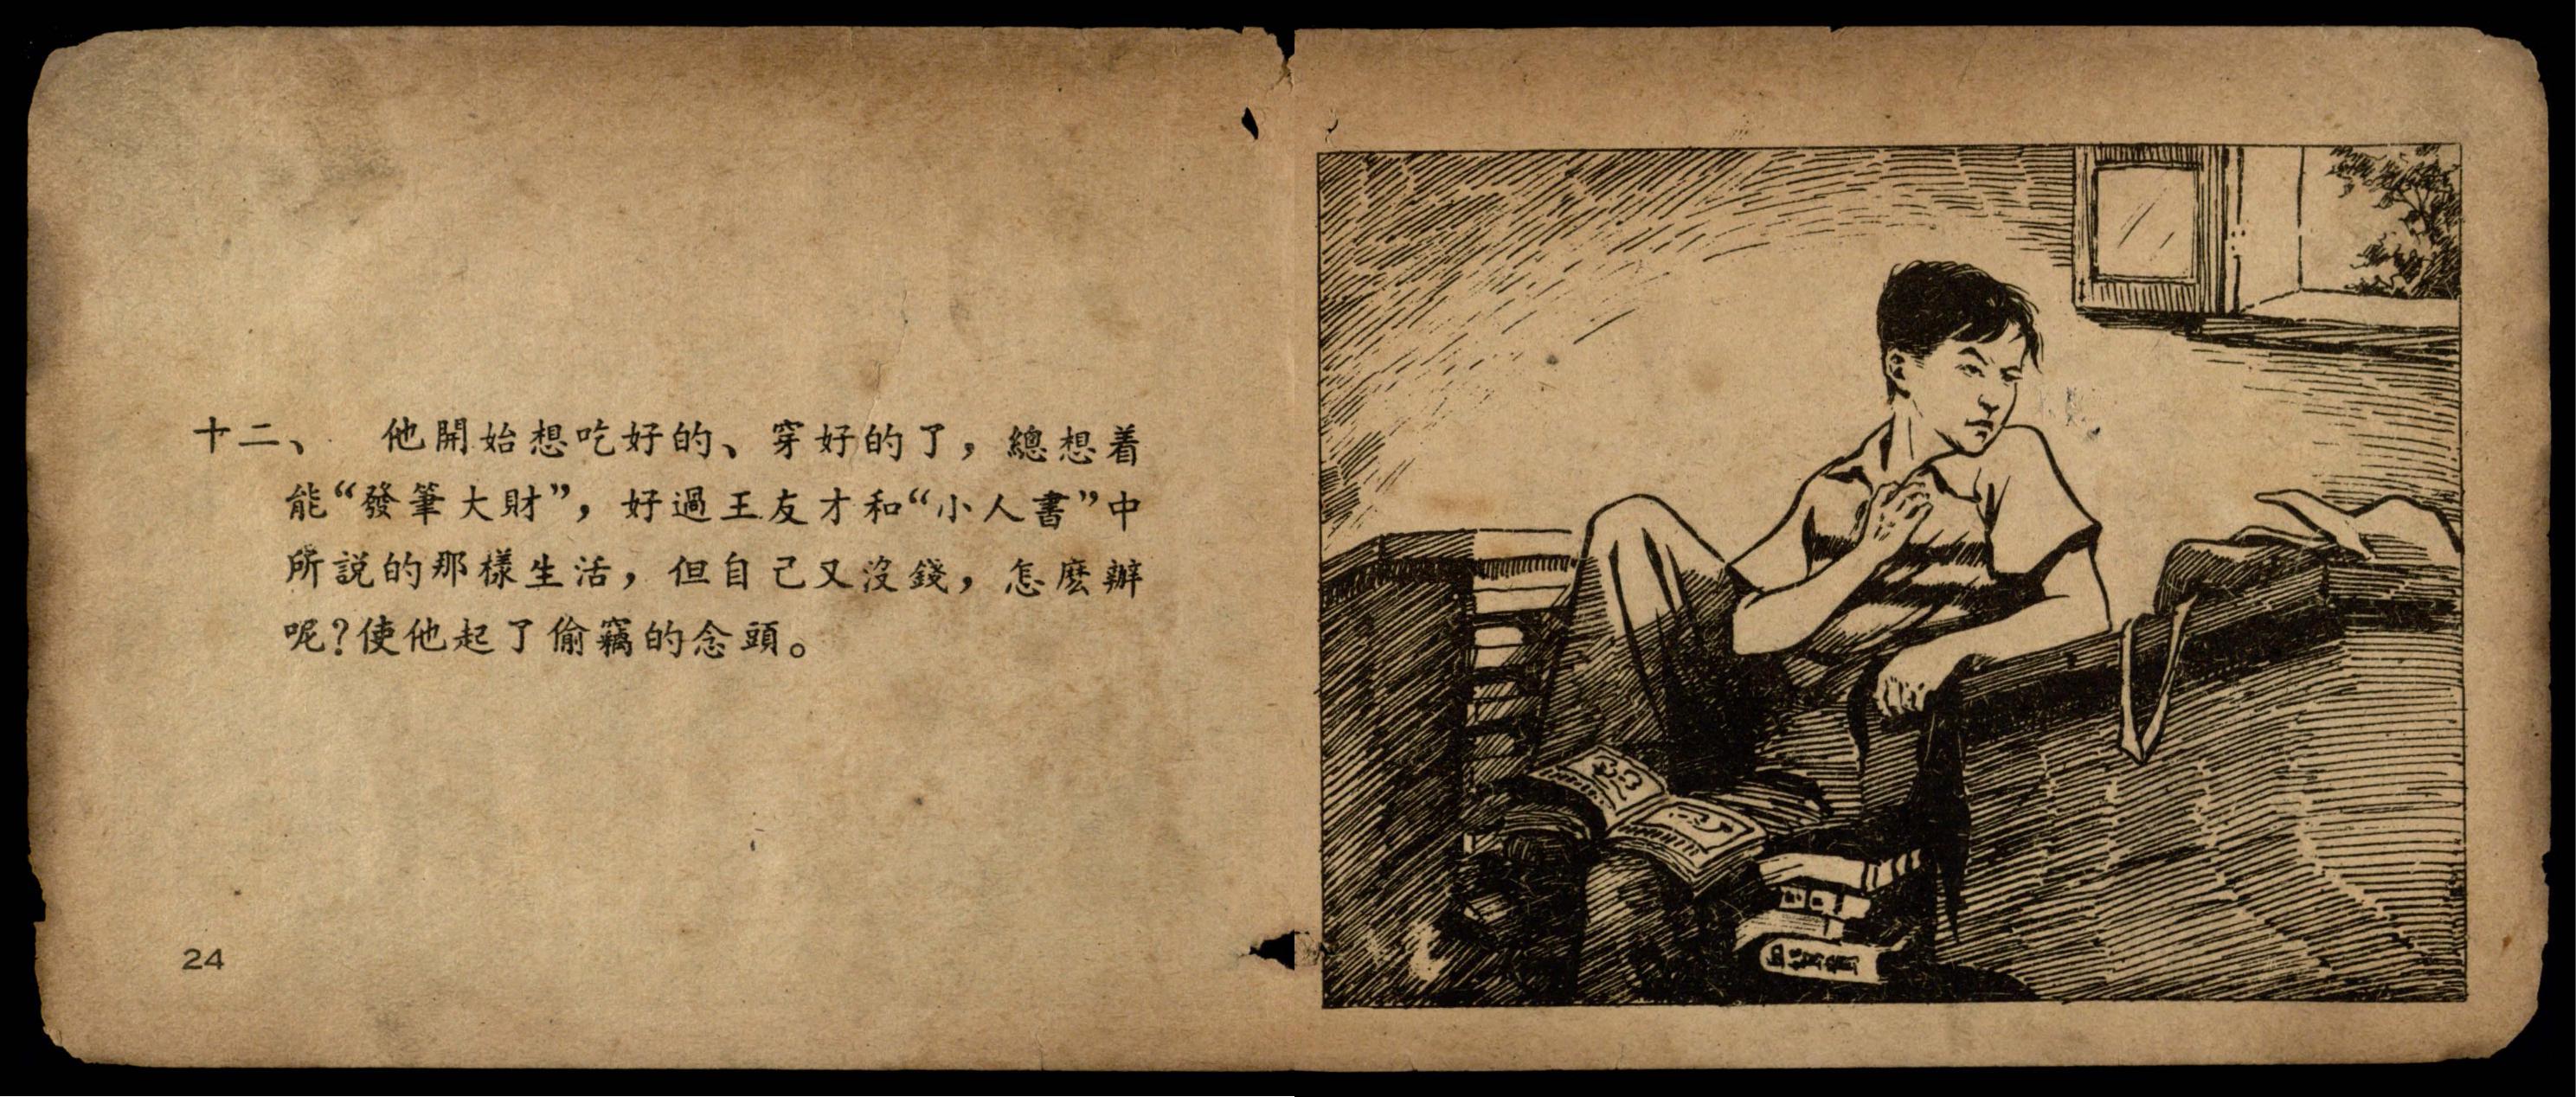 十二、 他開始想吃好的、穿好的了，總想着
能“發筆大財”，好過王友才和“小人書”中
所説的那樣生活，但自己又沒錢，怎麽辦
呢？使他起了偷竊的念頭。
24